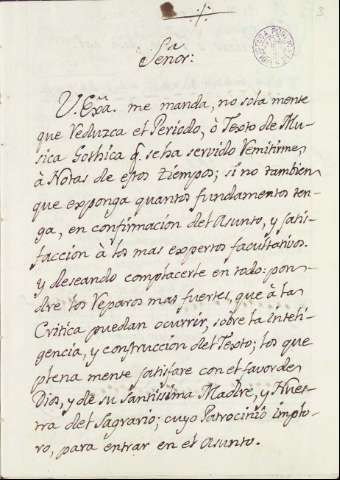 3
Señor:
V. Exa. me manda, no sola mente
que Reduzca el Periodo, ò Texto de Mu-
sica Gothica q. se ha servido Remitirme,
à Notas de estos tiempos; si no tambien
que exponga quantos fundamentos ten-
ga, en confirmación del Asunto, y satis-
facción à los mas expertos facultativos.
y deseando complacerle en todo: pon-
dre los Reparos mas fuertes, que à la
Critica puedan ocurrir, sobre la inteli-
gencia, y construcción del Texto; los que
plena mente satisfare con el favor de
Dios, y de su Santissima Madre, y Nues-
tra del Sagrario; cuyo Patrocinio implo-
ro, para entrar en el Asunto.